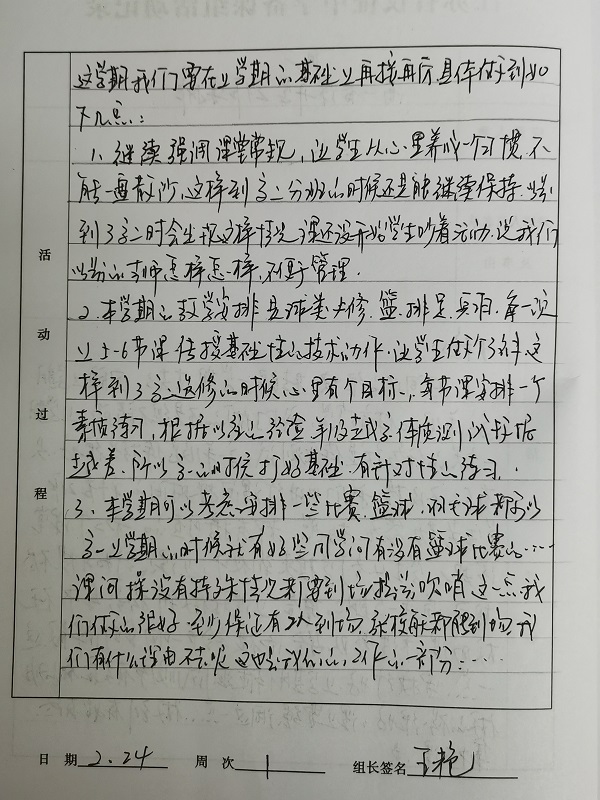 这学期我们要在上学期的基础上再接再厉,具体做到如
下几点:
1、继续强调课堂常规,让学生从心里养成一个习惯,不
能一再散所,这样到高二分班的时候还是能继续保持,
到了高二时会出现这样情况,课还没开始学生吵着活动,说我们
以前的老师怎样怎样,不便于管理.
2、本学期的教学安排是球类必修,篮、排、足、羽,每一项
上5-6节课传授基础性的技术动作,让学生做个了解,这
样到了高二选修的时候心里有个目标,每节课安排一个
素质练习,根据以往的经验,年级越高体质测试数据
越差,所以高一的时候打好基础,有针对性的练习.
3、本学期可以考虑安排一些比赛,篮球、羽毛球都可以
高一上学期的时候就有好些同学问有没有篮球比赛的……
课间操没有特殊情况都要到场 吹哨 这一点我
们做的很好,至少保证有2人到场,张校长都能到场,我
们有什么理由不去呢,这也是我们的工作的一部分……
活动过程
日期 2.24 周次 1 组长签名 王艳